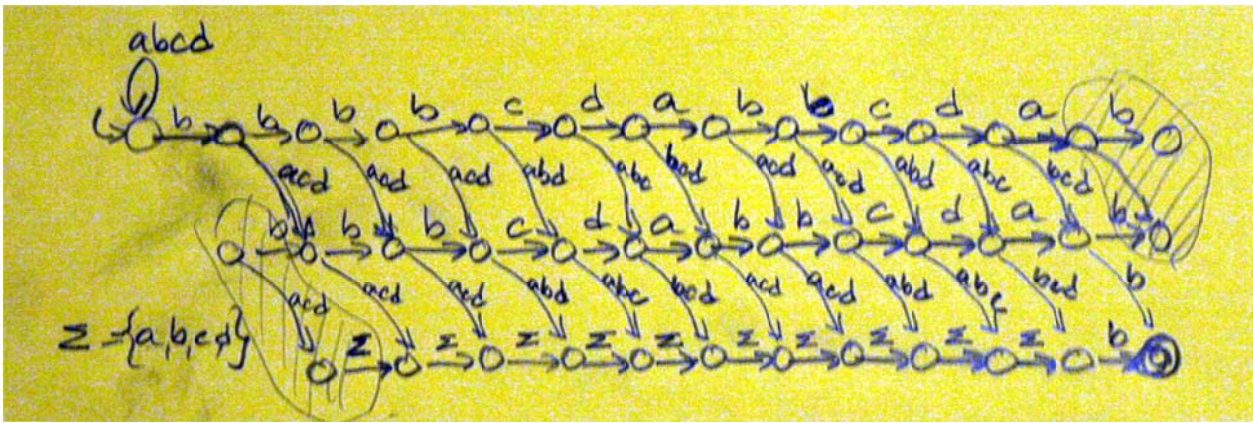 abcd
b b b b c d a b b c d a b
acd acd acd abd abc bcd acd acd abd abc bcd
b b b c d a b b c d a b
acd acd acd abd abc bcd acd acd abd abc bcd b
Σ={a,b,c,d}
Σ Σ Σ Σ Σ Σ Σ Σ Σ Σ b